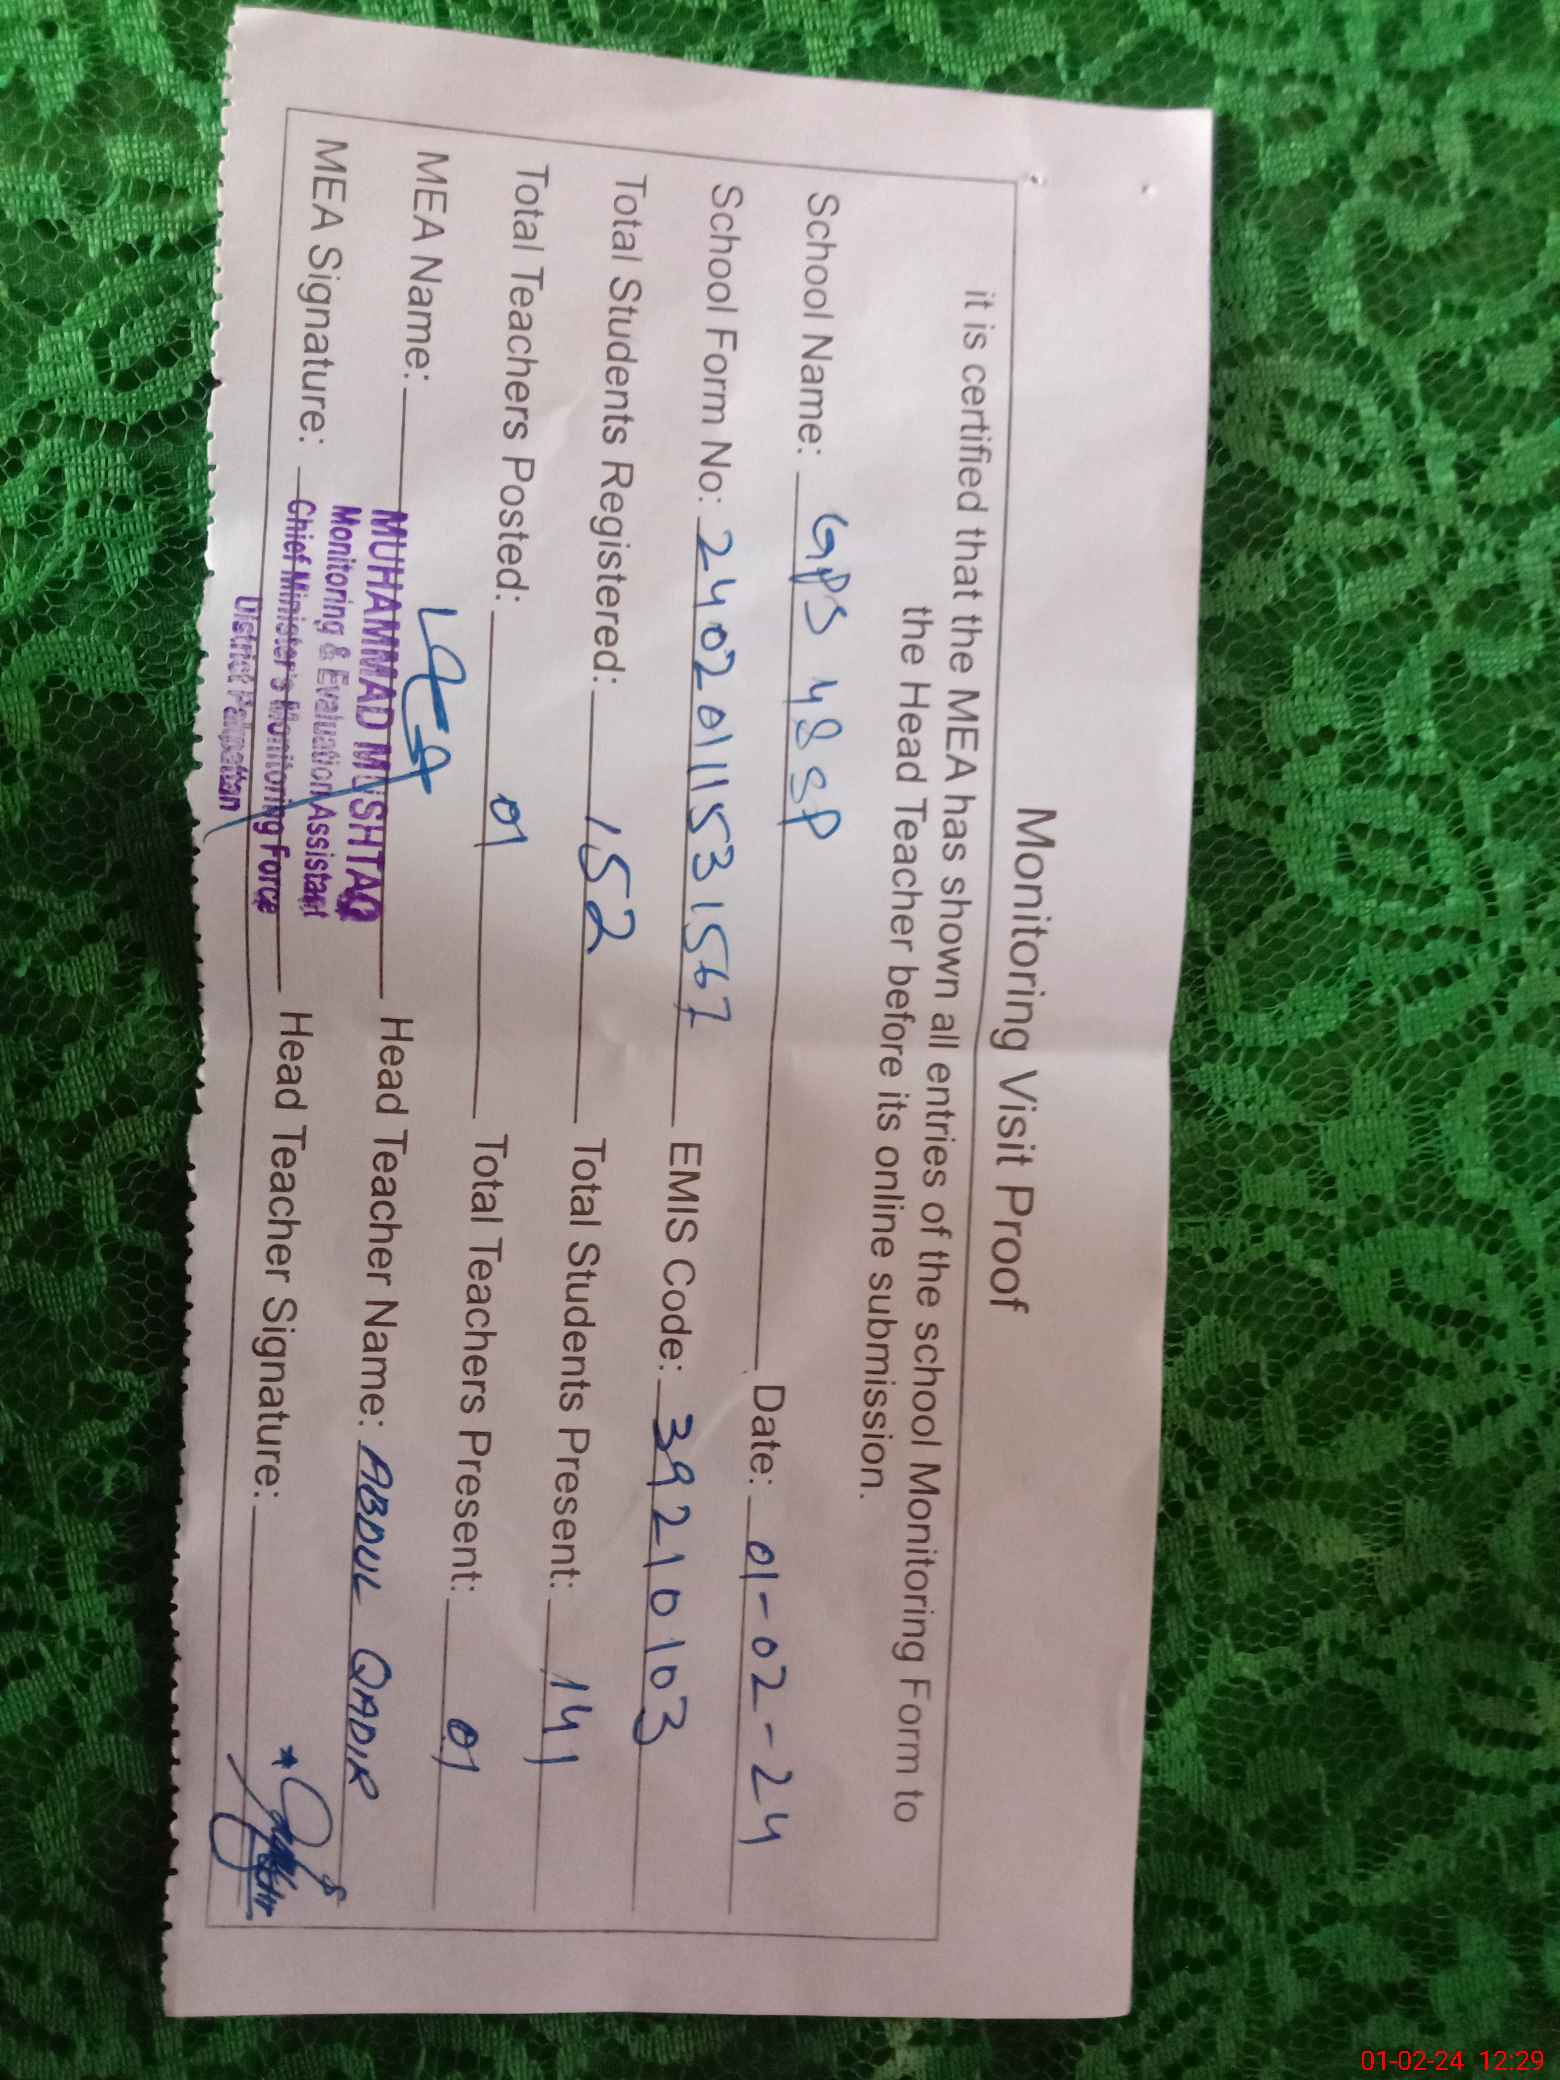 Monitoring Visit Proof
it is certified that the MEA has shown all entries of the school Monitoring Form to
the Head Teacher before its online submission.
School Name: GPS 48 SP Date: 01-02-24
School Form No: 2402011531567 EMIS Code: 39210103
Total Students Registered: 152 Total Students Present: 141
Total Teachers Posted: 01 Total Teachers Present: 01
MEA Name: MUHAMMAD MUSHTAQ Head Teacher Name: ABDUL QADIR
Monitoring & Evaluation Assistant
MEA Signature: Chief Minister's Monitoring Force Head Teacher Signature:
District Pakpattan
01-02-24 12:29